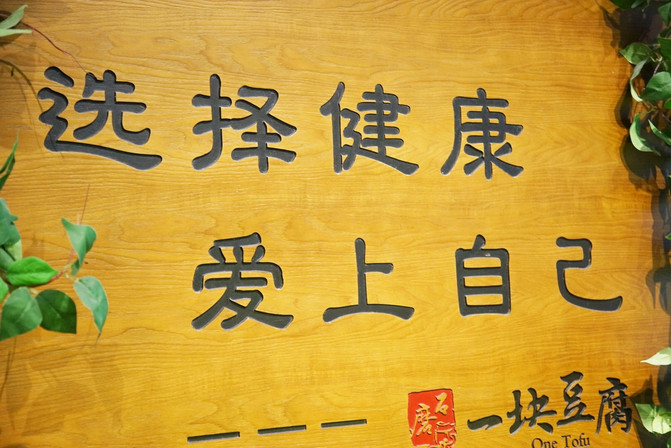 选择健康
爱上自己
——— 石磨 一块豆腐
One Tofu